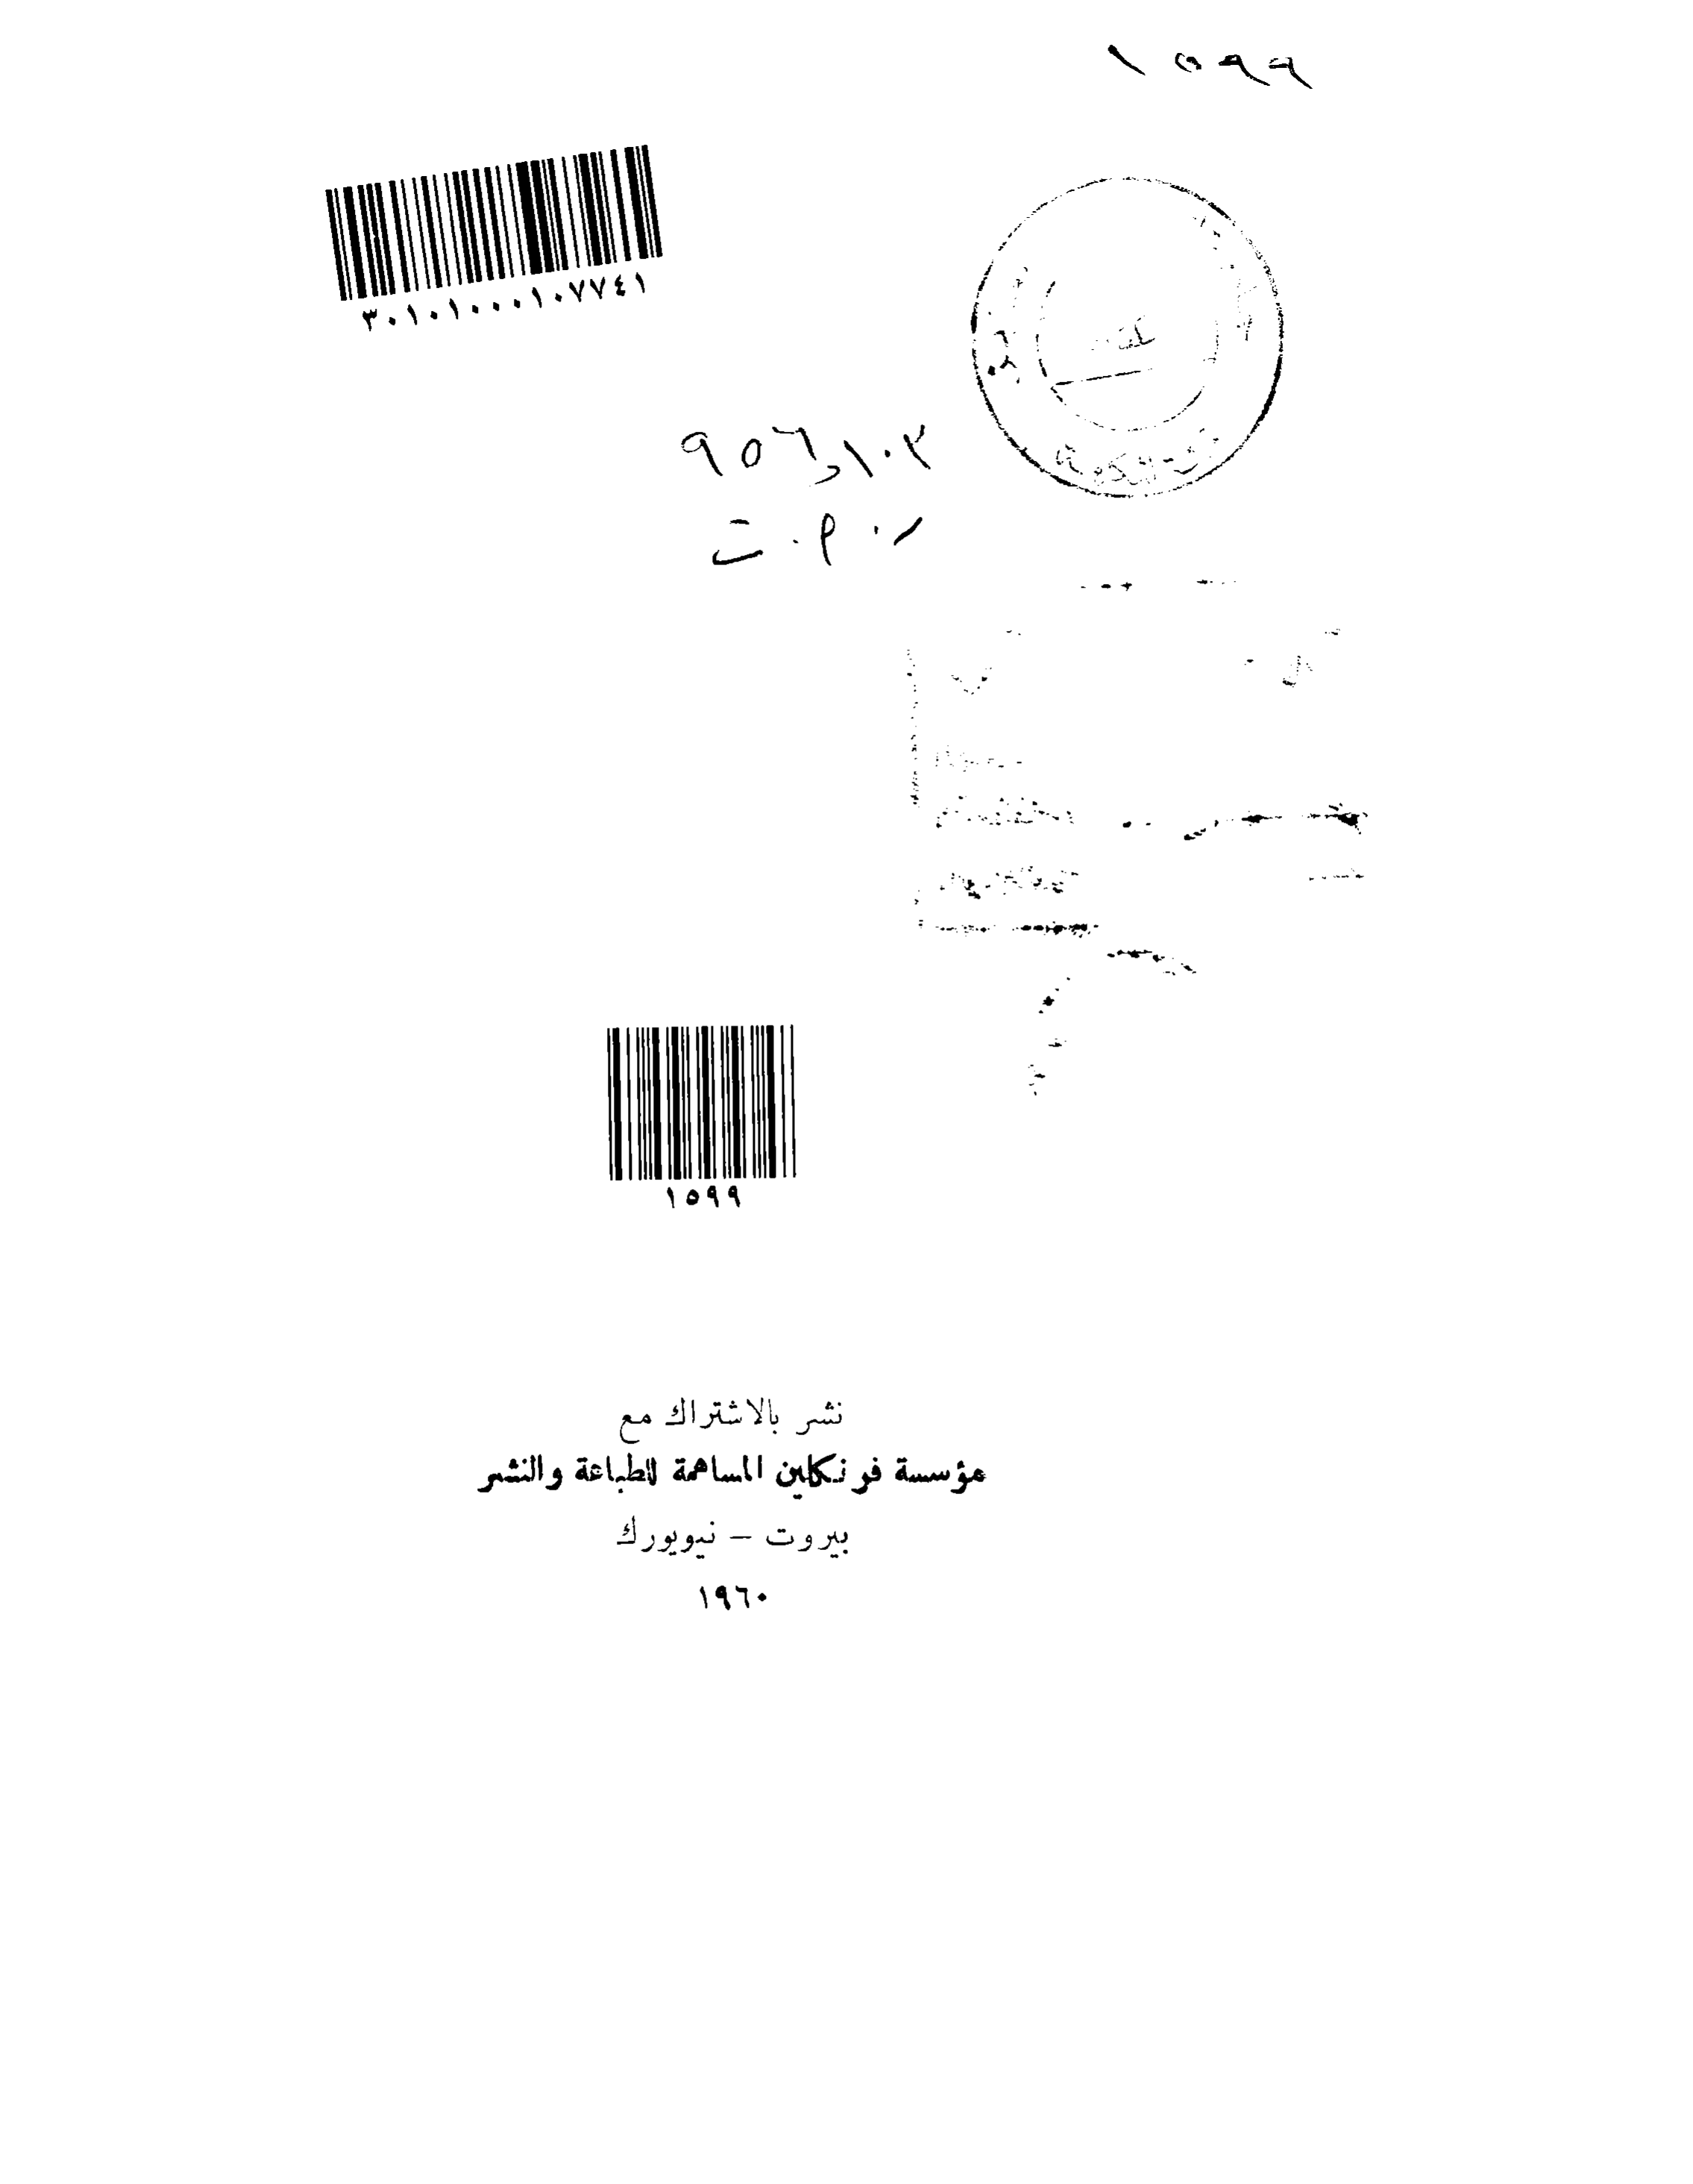 ١٥٩٩
٣٠١٠١٠٠٠١٠٧٧٤١
٩٥٦,١٠٣
ر . م . ت
١٥٩٩
نشر بالاشتراك مع
مؤسسة فرنكلين المساهمة للطباعة والنشر
بيروت – نيويورك
١٩٦٠